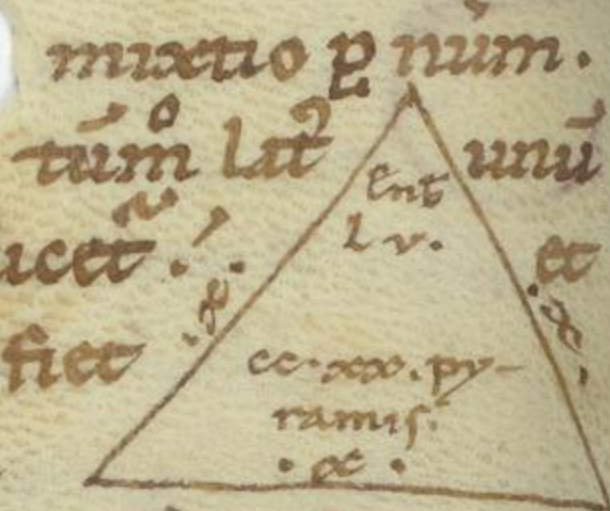 mixtio p num.
tum lat unu
icet. et
fiet
ent
l v.
cc.xx. py-
ramis.
.x.
.x.
.x.